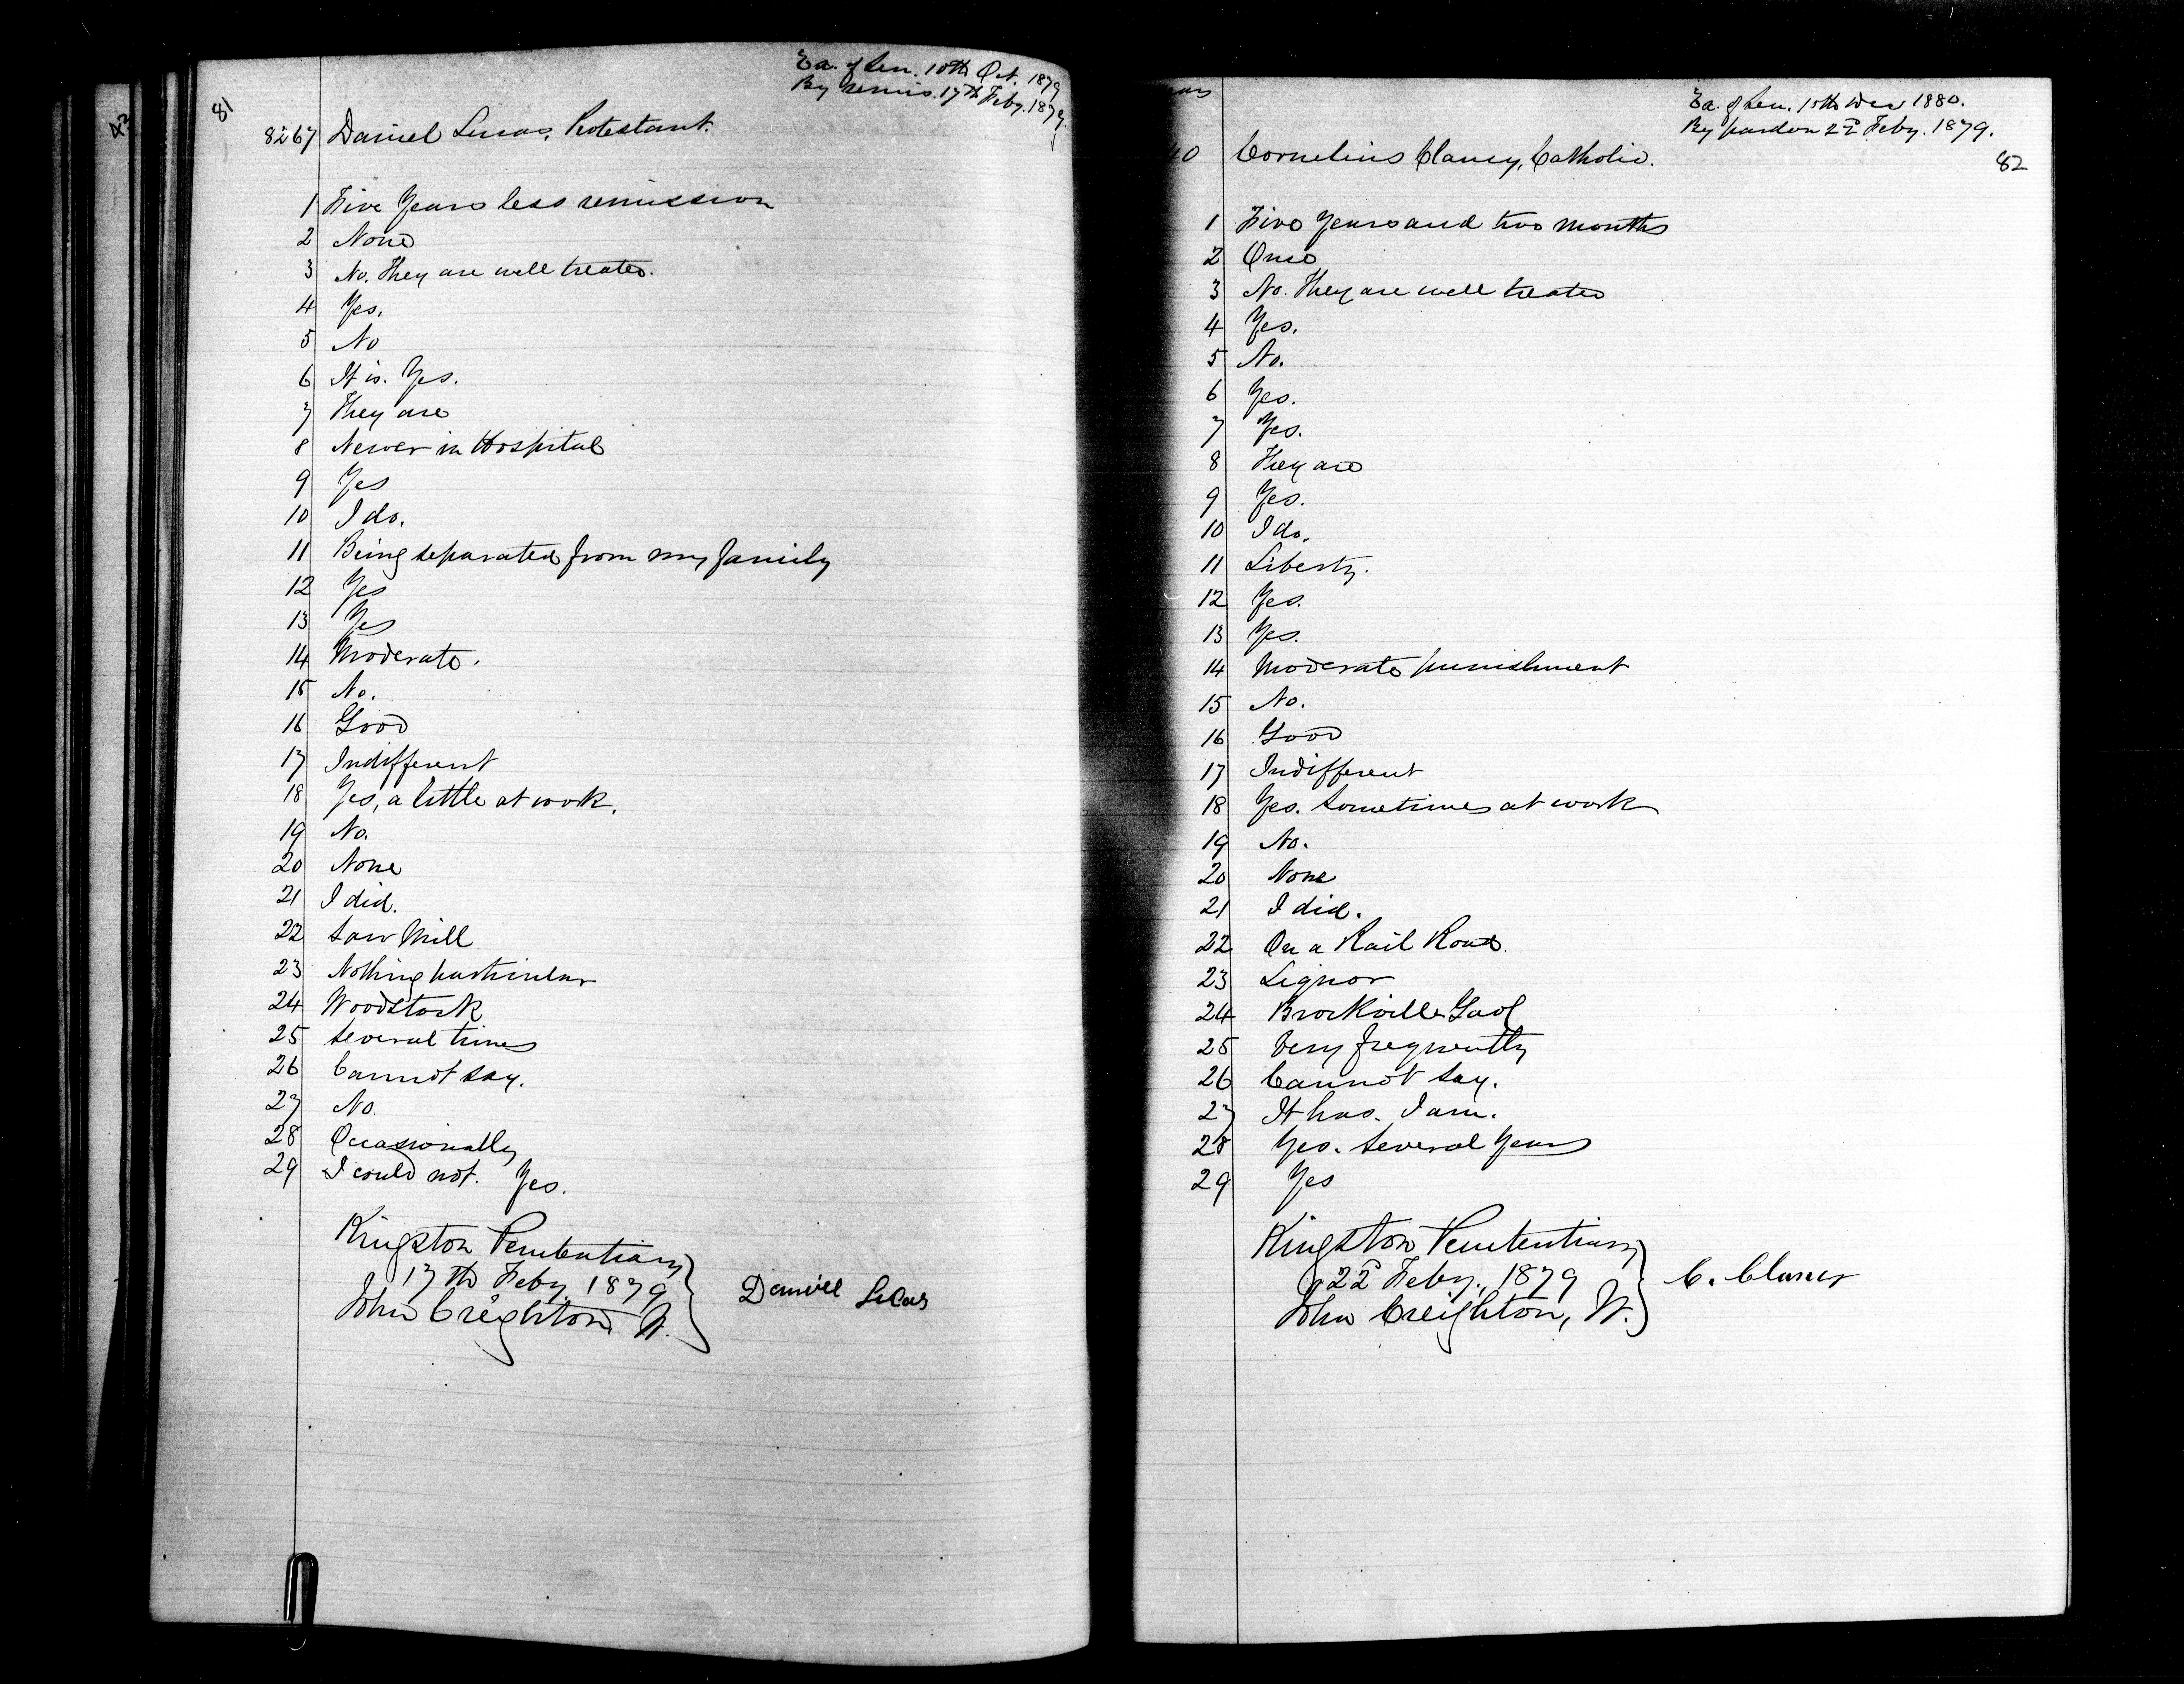 81
Ex. of Sen. 10th Oct. 1879
By remis. 17th Feby. 1879.
8267 Daniel Lucas, Protestant.
1 Five Years less remission
2 None
3 No. They are well treated.
4 Yes.
5 No
6 It is. Yes.
7 They are
8 Never in Hospital
9 Yes
10 I do.
11 Being separated from my family
12 Yes
13 Yes
14 Moderate.
15 No.
16 Good
17 Indifferent
18 Yes, a little at work.
19 No.
20 None
21 I did.
22 Saw Mill
23 Nothing particular
24 Woodstock
25 Several times
26 Cannot say.
27 No.
28 Occasionally
29 I could not. Yes.
Kingston Penitentiary
17th Feby. 1879
John Creighton W.
Daniel Lucas
Ex. of Sen. 15th Dec 1880.
By pardon 22d Feby. 1879.
82
40 Cornelius Clancy, Catholic.
1 Five Years and two months
2 Once
3 No. They are well treated
4 Yes.
5 No.
6 Yes.
7 Yes.
8 They are
9 Yes.
10 I do.
11 Liberty.
12 Yes.
13 Yes.
14 Moderate punishment
15 No.
16 Good
17 Indifferent
18 Yes. Sometimes at work
19 No.
20 None
21 I did.
22 On a Rail Road.
23 Liquor
24 Brockville Gaol
25 Very frequently
26 Cannot say.
27 It has. I am.
28 Yes. Several Years
29 Yes
Kingston Penitentiary
22d Feby., 1879
John Creighton, W.
C. Clancy